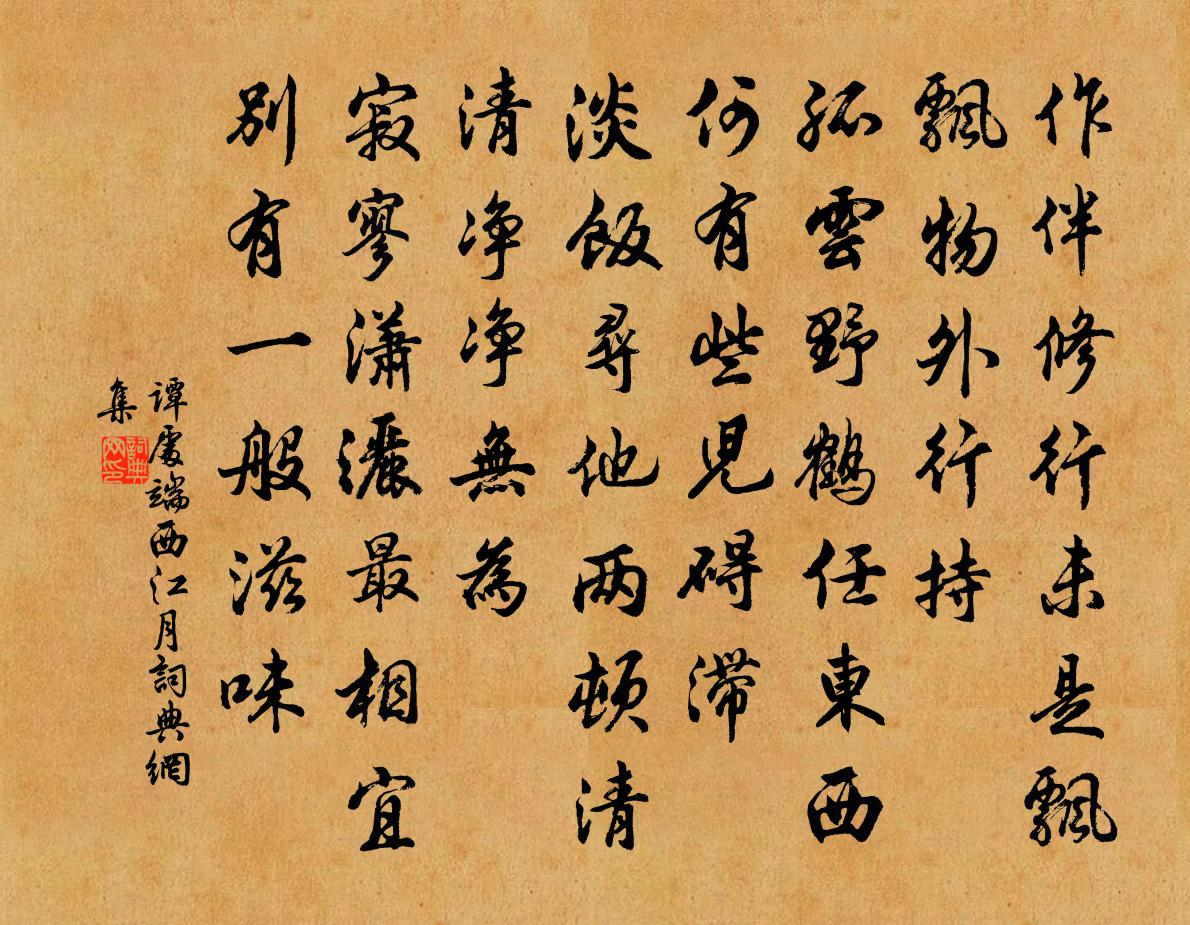 作伴修行未是飄
飄物外行持
孤雲野鶴任東西
何有些兒碍滯
淡飯尋他两頓清
清净净無為
寂寥瀟灑最相宜
別有一般滋味
譚處端西江月詞典網
集
詞典網印